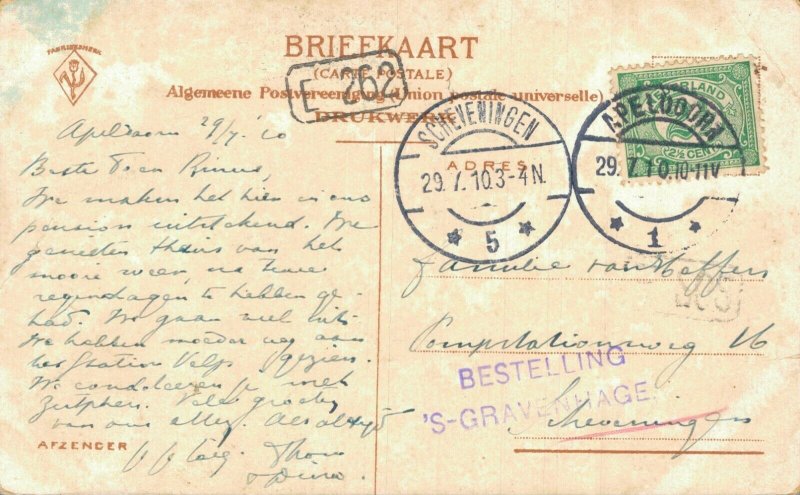 FABRIEKSMERK
BRIEFKAART
(CARTE POSTALE)
Algemeene Postvereeniging (Union postale universelle)
DRUKWERK
E 262
SCHEVENINGEN
29.7.10.3-4N.
5
APELDOORN
29.7.10.10-11V
1
NEDERLAND
2½ CENT
ADRES
Apeldoorn 29/7 '10
Beste
We maken het hier in ons
pension uitstekend. We
genieten thans van het
mooie weer, na twee
regendagen te hebben ge-
had. We gaan veel uit.
We hebben moeder nog aan
het station Velp gezien.
We condoleeren je met
Zutphen. Vele groeten
van ons allen. Als altijd
Thom
AFZENDER
Familie van
16
Scheveningen
BESTELLING
'S-GRAVENHAGE.